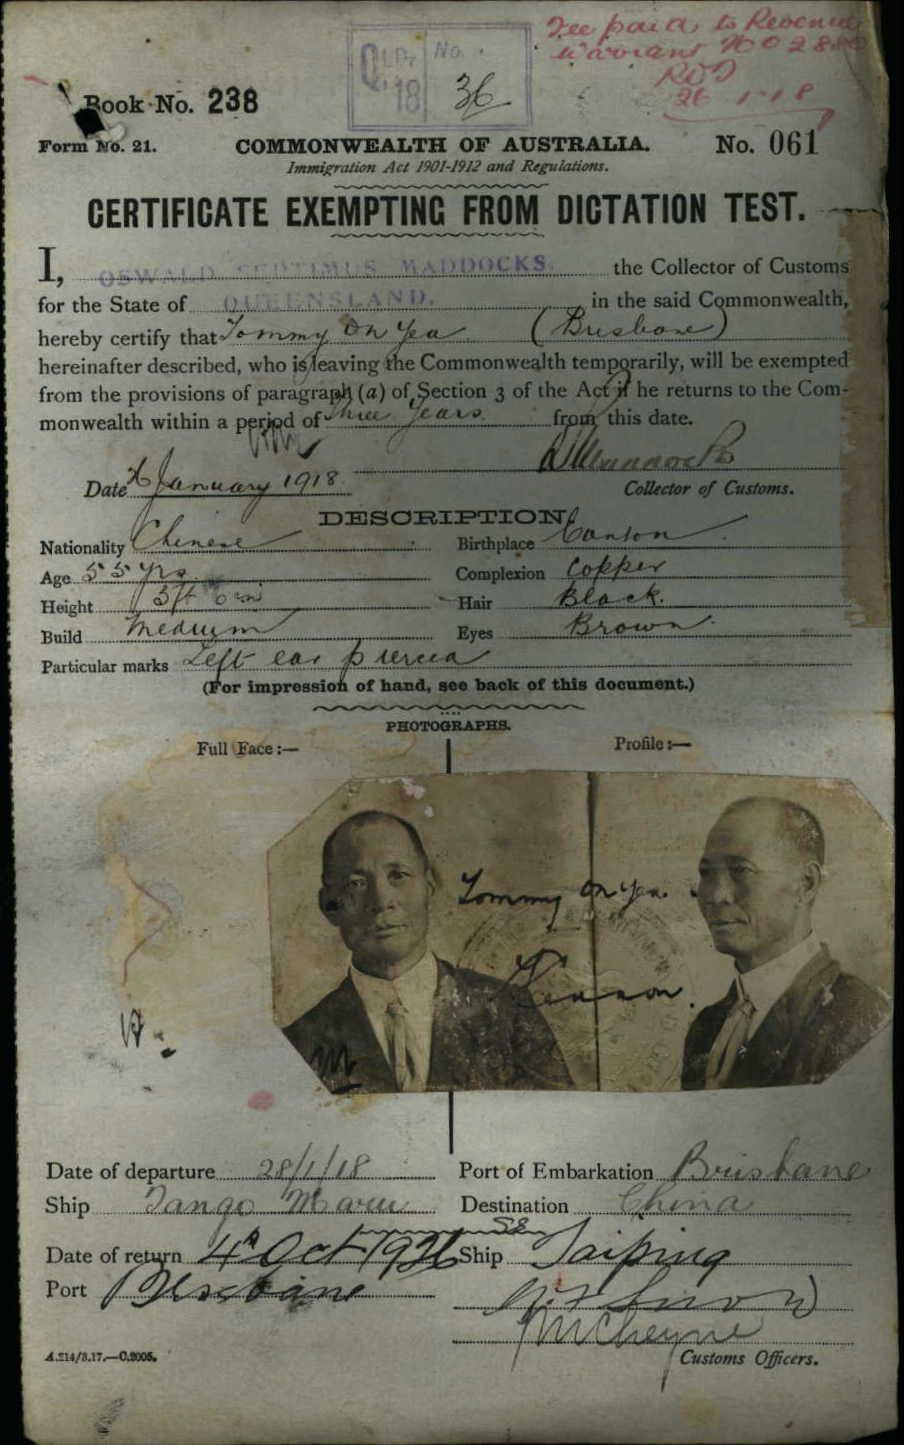 Fee paid to Revenue
warrant No
26.1.18
QLD,
18
No.
36
Book No. 238
Form No. 21.
COMMONWEALTH OF AUSTRALIA.
No. 061
Immigration Act 1901-1912 and Regulations.
CERTIFICATE EXEMPTING FROM DICTATION TEST.
I, OSWALD SEPTIMUS MADDOCKS. the Collector of Customs
for the State of QUEENSLAND. in the said Commonwealth,
hereby certify that Tommy On Yea (Brisbane)
hereinafter described, who is leaving the Commonwealth temporarily, will be exempted
from the provisions of paragraph (a) of Section 3 of the Act if he returns to the Com-
monwealth within a period of three years from this date.
Date January 1918
Collector of Customs.
DESCRIPTION.
Nationality Chinese Birthplace Canton
Age 55 yrs Complexion Copper
Height 5ft 6in Hair Black.
Build Medium Eyes Brown
Particular marks Left ear pierced
(For impression of hand, see back of this document.)
PHOTOGRAPHS.
Full Face:— Profile:—
Tommy On Yea.
Date of departure 28/1/18 Port of Embarkation Brisbane
Ship Tango Maru Destination China
Date of return 4th Oct 1926 Ship SS Taiping
Port Brisbane
McCheyne
A.214/3.17.—C.2005. Customs Officers.